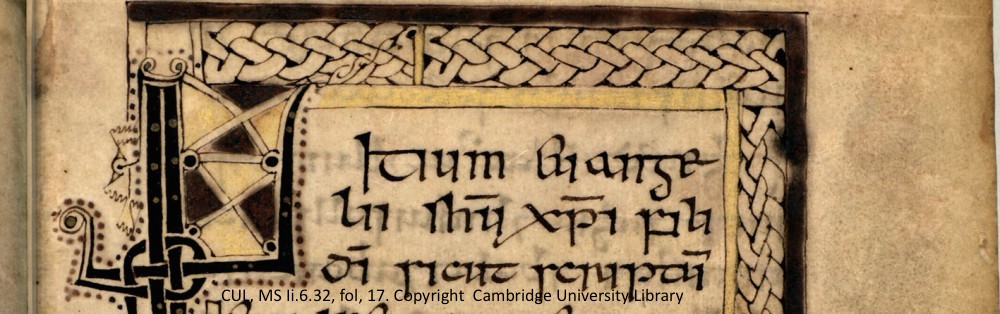 INitium euange
lii ihū xp̄i fili
dī sicut scriptū
CUL, MS Ii.6.32, fol, 17. Copyright Cambridge University Library